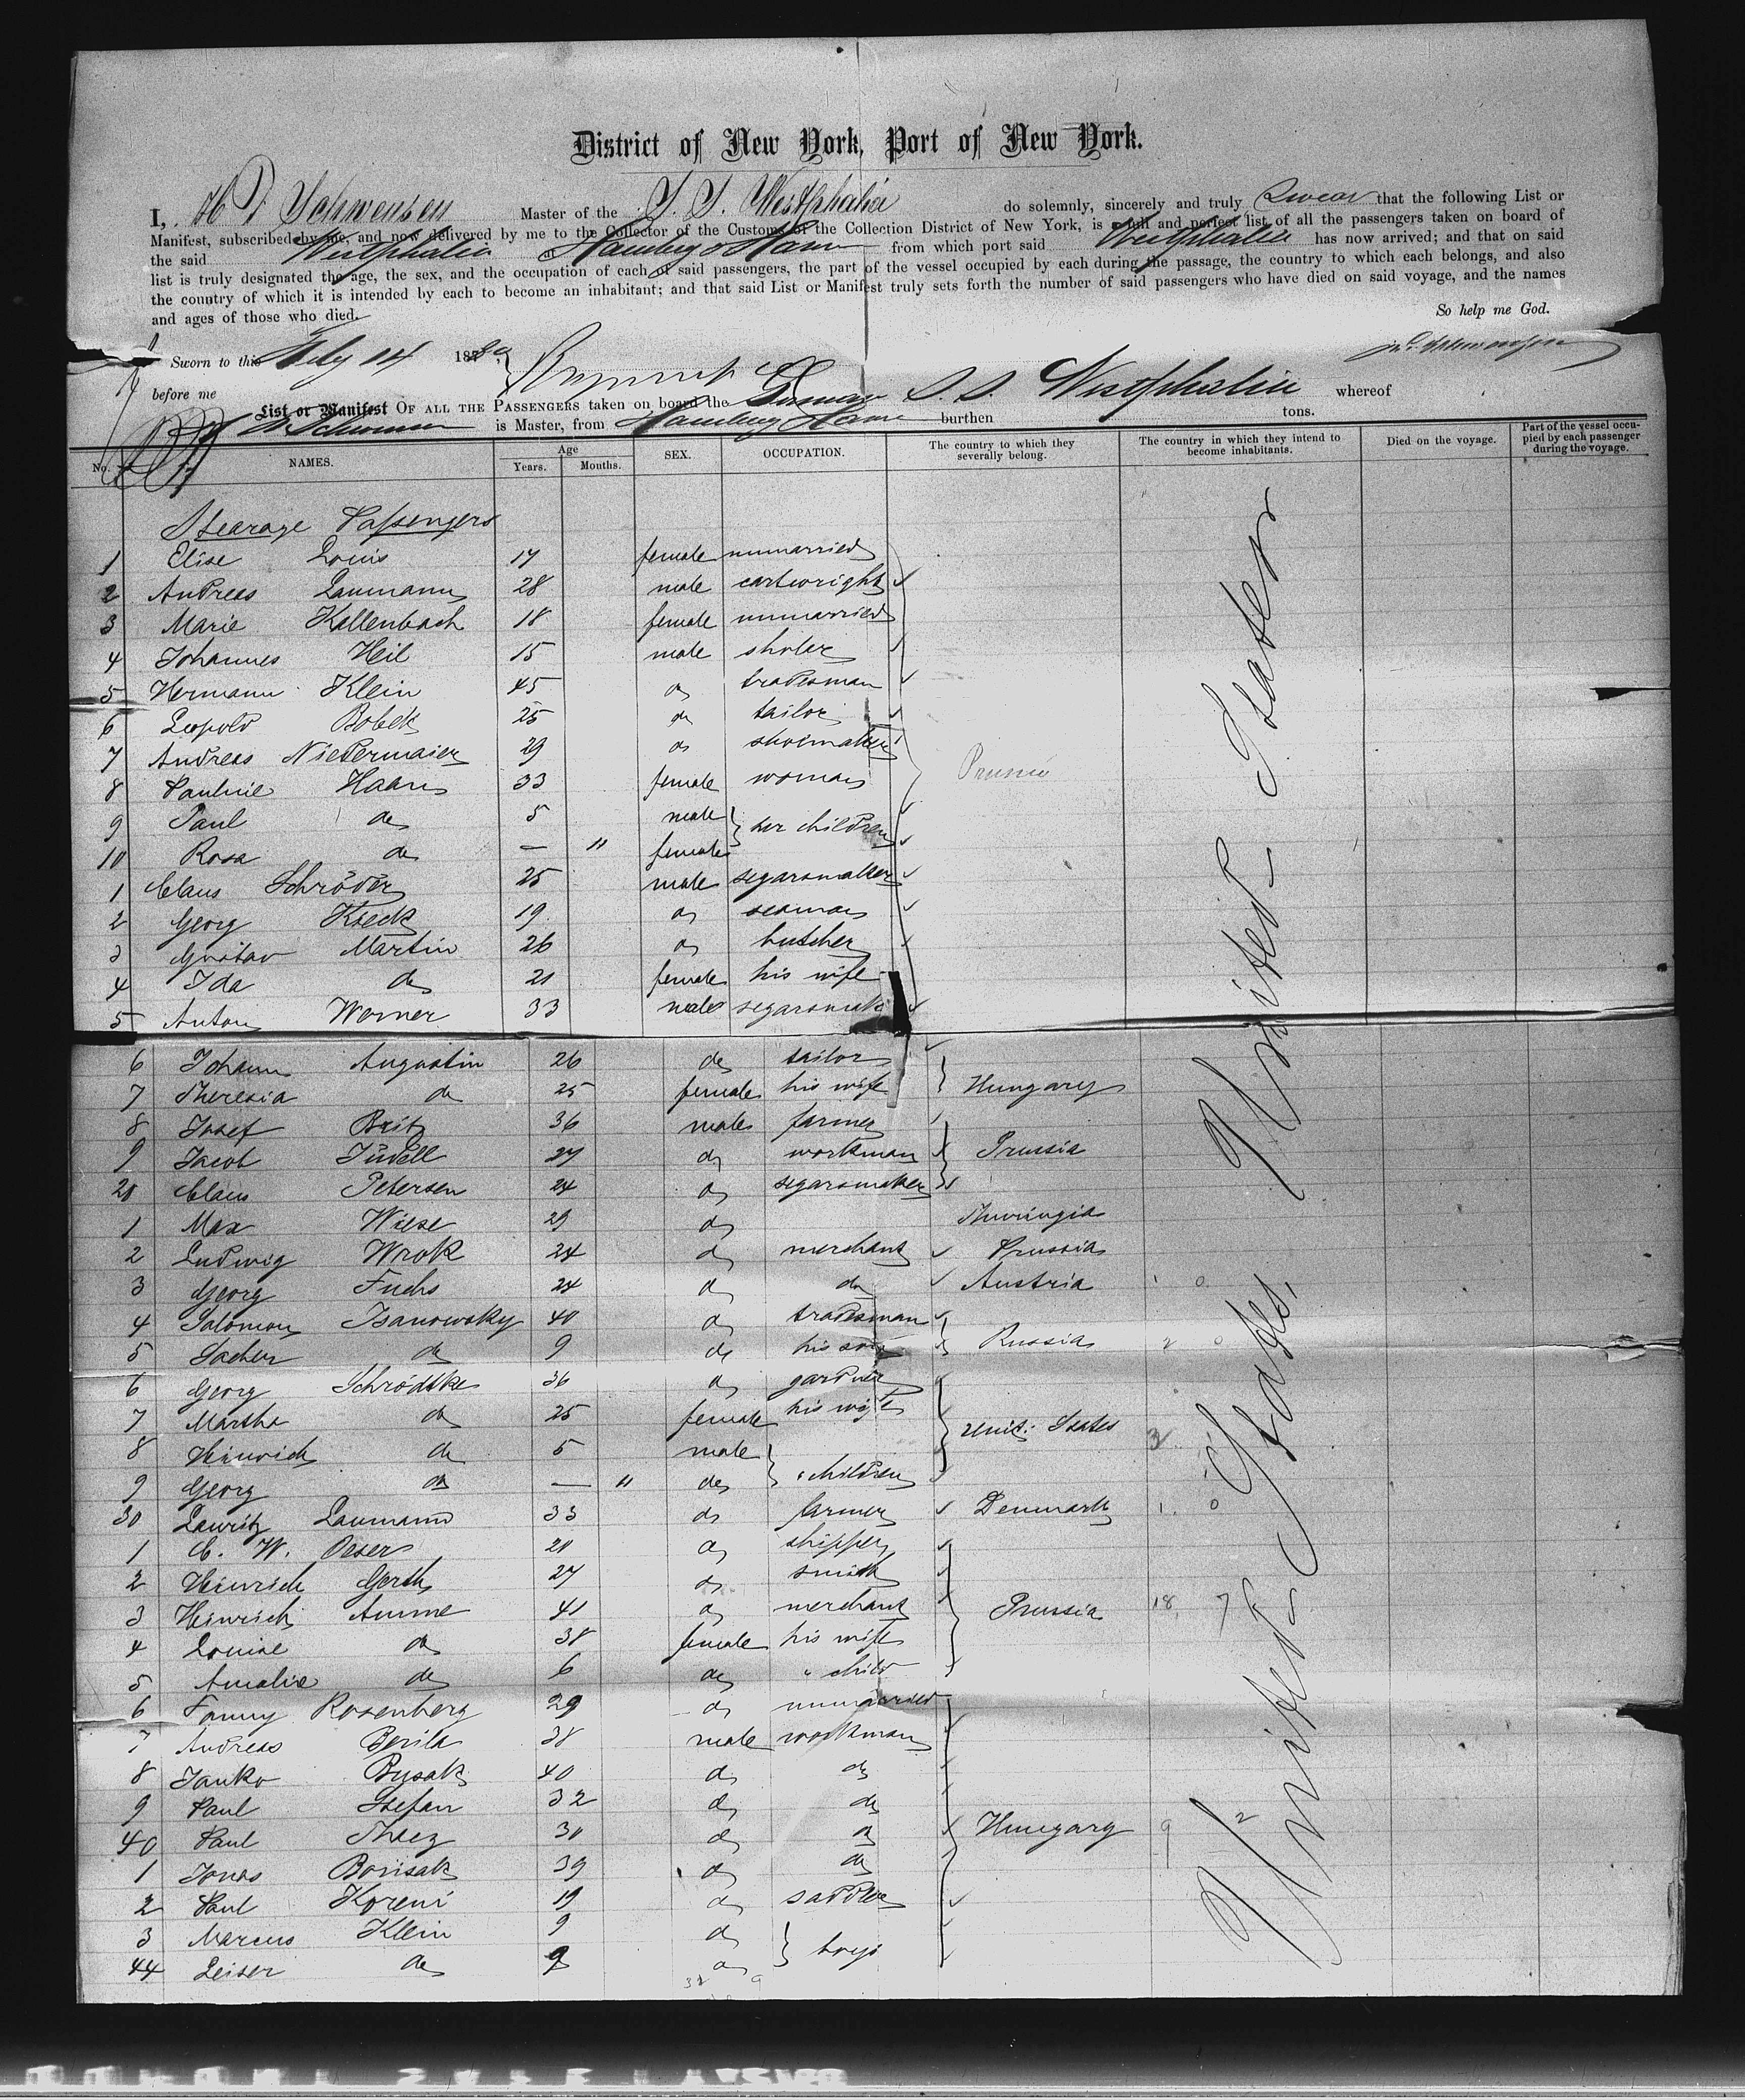 District of New York, Port of New York.
I, H P Schwensen Master of the S. S. Westphalia do solemnly, sincerely and truly Swear that the following List or
Manifest, subscribed by me, and now delivered by me to the Collector of the Customs of the Collection District of New York, is a full and perfect list of all the passengers taken on board of
the said Westphalia Hamburg & Havre from which port said Westphalia has now arrived; and that on said
list is truly designated the age, the sex, and the occupation of each of said passengers, the part of the vessel occupied by each during the passage, the country to which each belongs, and also
the country of which it is intended by each to become an inhabitant; and that said List or Manifest truly sets forth the number of said passengers who have died on said voyage, and the names
and ages of those who died.
So help me God.
Sworn to this Feby 14 1880
before me
List or Manifest OF ALL THE PASSENGERS taken on board the German S. S. Westphalia whereof
Schwensen is Master, from Hamburg Havre burthen tons.
No. NAMES. Age Years. Months. SEX. OCCUPATION. The country to which they severally belong. The country in which they intend to become inhabitants. Died on the voyage. Part of the vessel occupied by each passenger during the voyage.
Stearage Passengers
1 Elise Louis 17 female unmarried
2 Andreas Laumann 28 male cartwright
3 Marie Kallenbach 18 female unmarried
4 Johannes Heil 15 male sholer
5 Hermann Klein 45 do tradesman
6 Leopold Bobek 25 do tailor
7 Andreas Niedermaier 29 do shoemaker
8 Pauline Haan 33 female woman Prussia
9 Paul do 5 male } her children
10 Rosa do — " female
1 Claus Schröder 25 male segarsmaker
2 Georg Kreck 19 do seaman
3 Gustav Martin 26 do butcher
4 Ida do 21 female his wife
5 Anton Werner 33 male segarsmak
6 Johann Augustin 26 do tailor
7 Theresia do 25 female his wife } Hungary
8 Josef Britz 36 male farmer
9 Jacob Jüdell 27 do workman } Prussia
20 Claus Petersen 24 do segarsmaker
1 Max Wiese 29 do Thuringia
2 Ludwig Wrok 24 do merchant Prussia
3 Georg Fuchs 24 do do Austria 1 0
4 Salomon Isanowsky 40 do tradesman
5 Sacher do 9 do his son } Russia 2 0
6 Georg Schrödtke 36 do gardner
7 Martha do 25 female his wife } Unit. States 3
8 Heinrich do 5 male
9 Georg do — " do } " children
30 Lauritz Laumann 33 do farmer Denmark 1 0
1 C. W. Oeser 21 do shipper
2 Heinrich Gerth 27 do smith
3 Heinrich Amme 41 do merchant } Prussia 18 7
4 Louise do 38 female his wife
5 Amalie do 6 do " child
6 Fanny Rosenberg 29 do unmarried
7 Andreas Berila 38 male workman
8 Janko Bysak 40 do do
9 Paul Stefan 32 do do
40 Paul 30 do do } Hungary 9 2
1 Jonas Borisak 39 do do
2 Paul Koreni 19 do saddler
3 Marcus Klein 9 do } boys
44 Leiser do 9 do
United States
United States